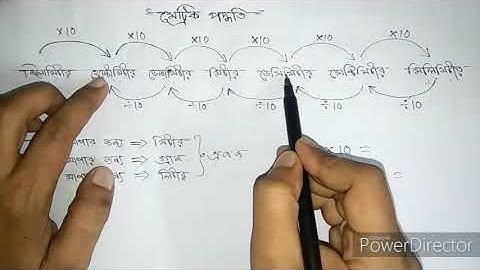 মেট্রিক পদ্ধতি
×10 ×10 ×10 ×10 ×10 ×10
ডেকামিটার মিটার ডেসিমিটার সেন্টিমিটার মিলিমিটার
÷10 ÷10 ÷10 ÷10 ÷10
মাপার জন্য ⇒ মিটার
মাপার জন্য ⇒ গ্রাম } একক
মাপার জন্য ⇒ লিটার
×10 =
=
PowerDirector